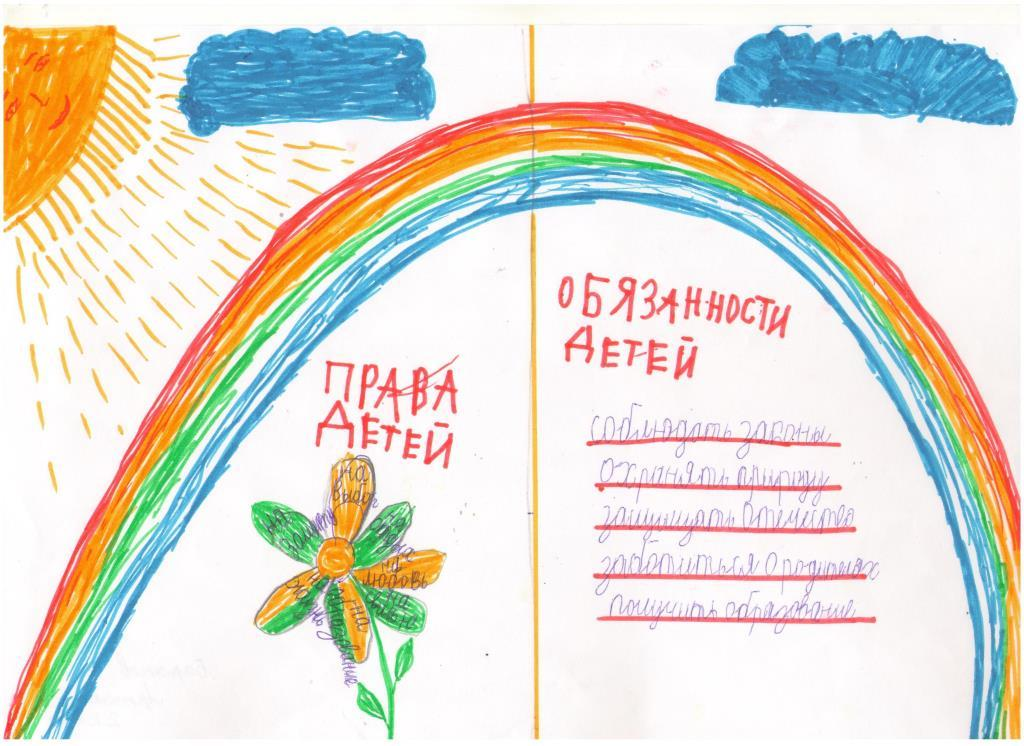 ПРАВА
ДЕТЕЙ
на
выбор
на
защиту
на
любовь
на
образование
ОБЯЗАННОСТИ
ДЕТЕЙ
соблюдать законы
охранять природу
защищать Отечество
заботиться о родителях
получить образование